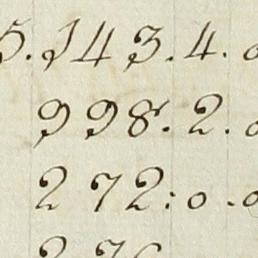 5.143.4.0
998.2.0
272:0.0
276